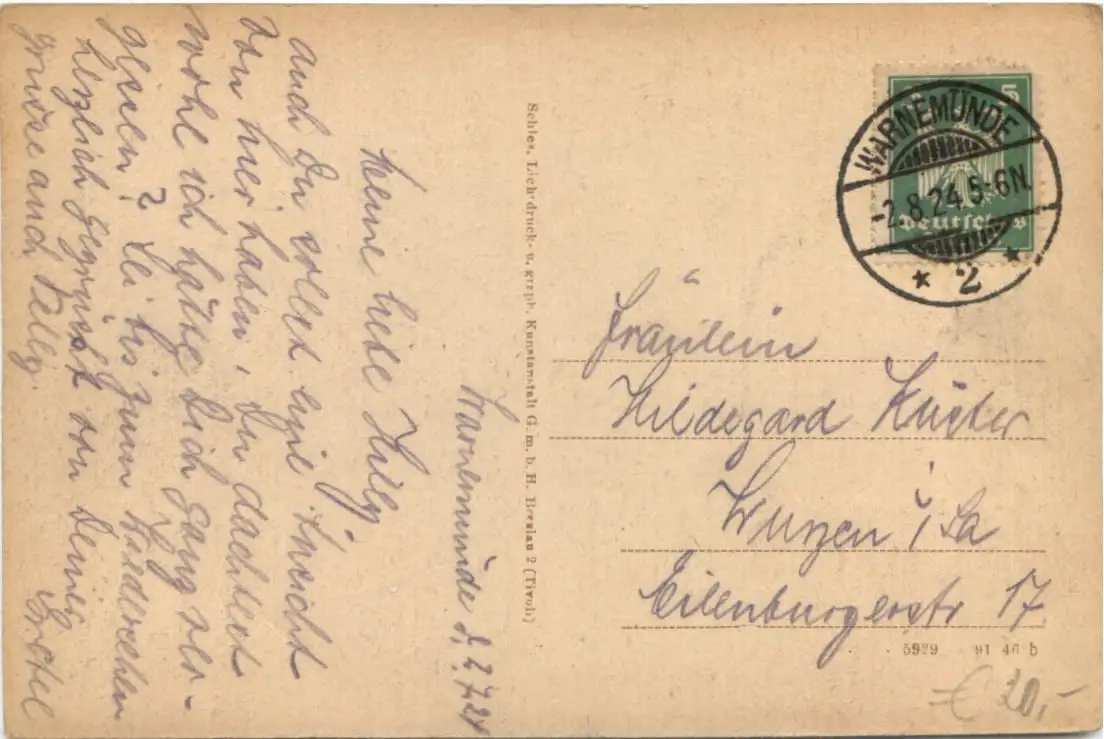 Warnemünde d, 2.7.24
Meine liebe Hilly
auch Du sollst eine Ansicht
von hier haben, Du dachtest
wohl ich hätte Dich ganz ver-
gessen? Sei bis zum Wiedersehen
herzlich gegrüsst von Deiner
grüsse auch Nelly.
Schles. Lichtdruck- u. graph. Kunstanstalt G. m. b. H. Breslau 2 (Tivoli)
WARNEMÜNDE
-2.8.24.5-6N.
* 2 *
5
Deutsches
Fräulein
Hildegard Küster
Wurzen i/Sa
Eilenburgerstr 17.
5929 91 46 b
€ 20,-